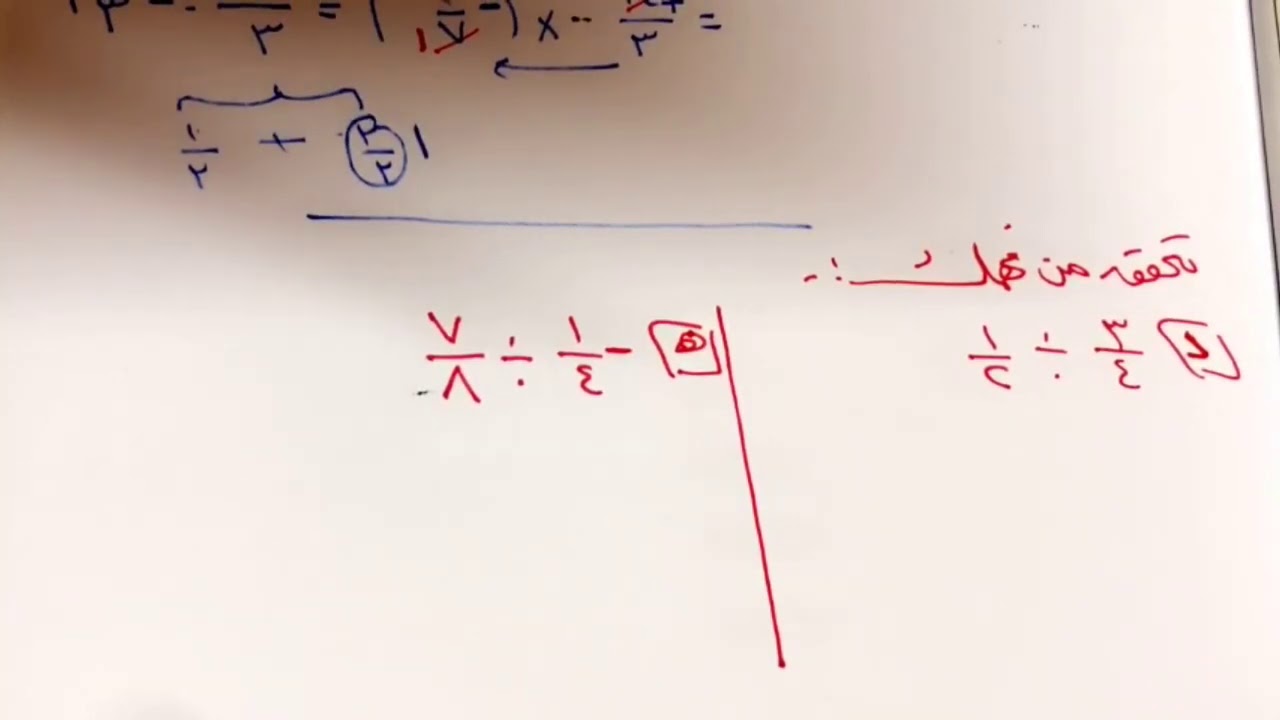 ١ ٣/٢ + ١/٢
تحقق من فهمك :-
د ٣/٤ ÷ ١/٢
هـ - ١/٤ ÷ ٧/٨